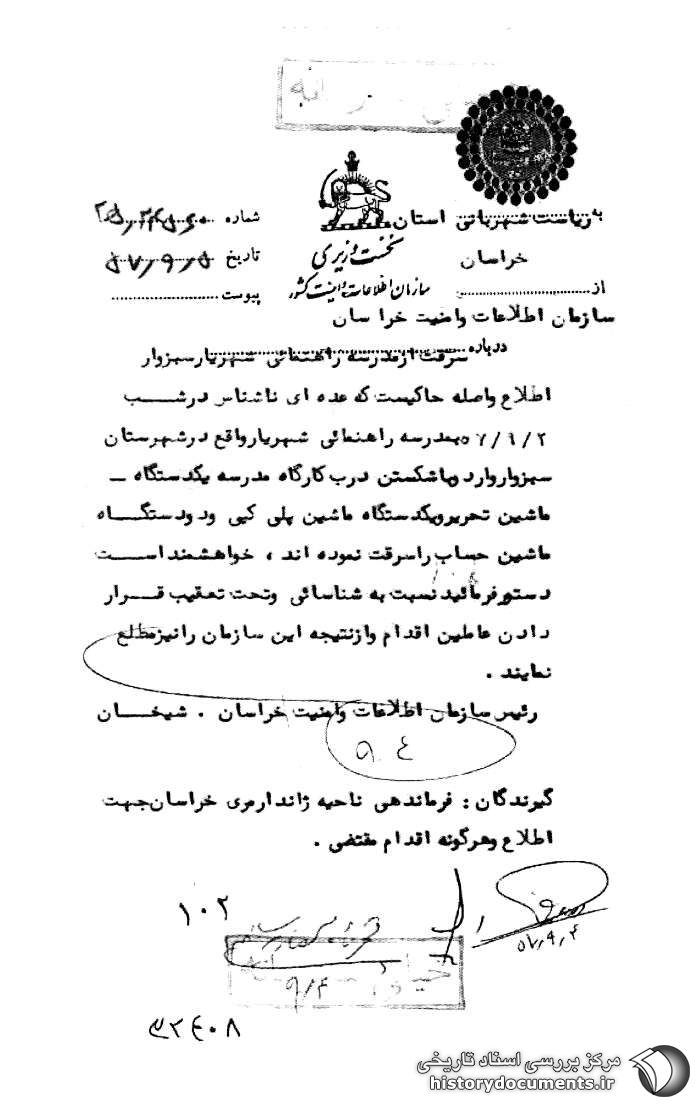 به ریاست شهربانی استان
خراسان
نخست وزیری
سازمان اطلاعات و امنیت کشور
شماره
تاریخ ۵۷/۹/۵
پیوست
از
سازمان اطلاعات وامنیت خراسان
درباره سرقت ازمدرسه راهنمائی شهریارسبزوار
اطلاع واصله حاکیست که عده ای ناشناس درشب
۵۷/۹/۲ بمدرسه راهنمائی شهریارواقع درشهرستان
سبزواروارد وباشکستن درب کارگاه مدرسه یکدستگاه ــ
ماشین تحریرویکدستگاه ماشین پلی کپی ودودستگاه
ماشین حساب راسرقت نموده اند ، خواهشمنداست
دستورفرمائیدنسبت به شناسائی وتحت تعقیب قرار
دادن عاملین اقدام وازنتیجه این سازمان رانیزمطلع
نمایند .
رئیس سازمان اطلاعات وامنیت خراسان . شیخان
۹.٤
گیرندگان : فرماندهی ناحیه ژاندارمری خراسان‌جهت
اطلاع وهرگونه اقدام مقتضی .
۱۰۲
۵۷٫۹٫۴
۹/۴
مرکز بررسی اسناد تاریخی
historydocuments.ir